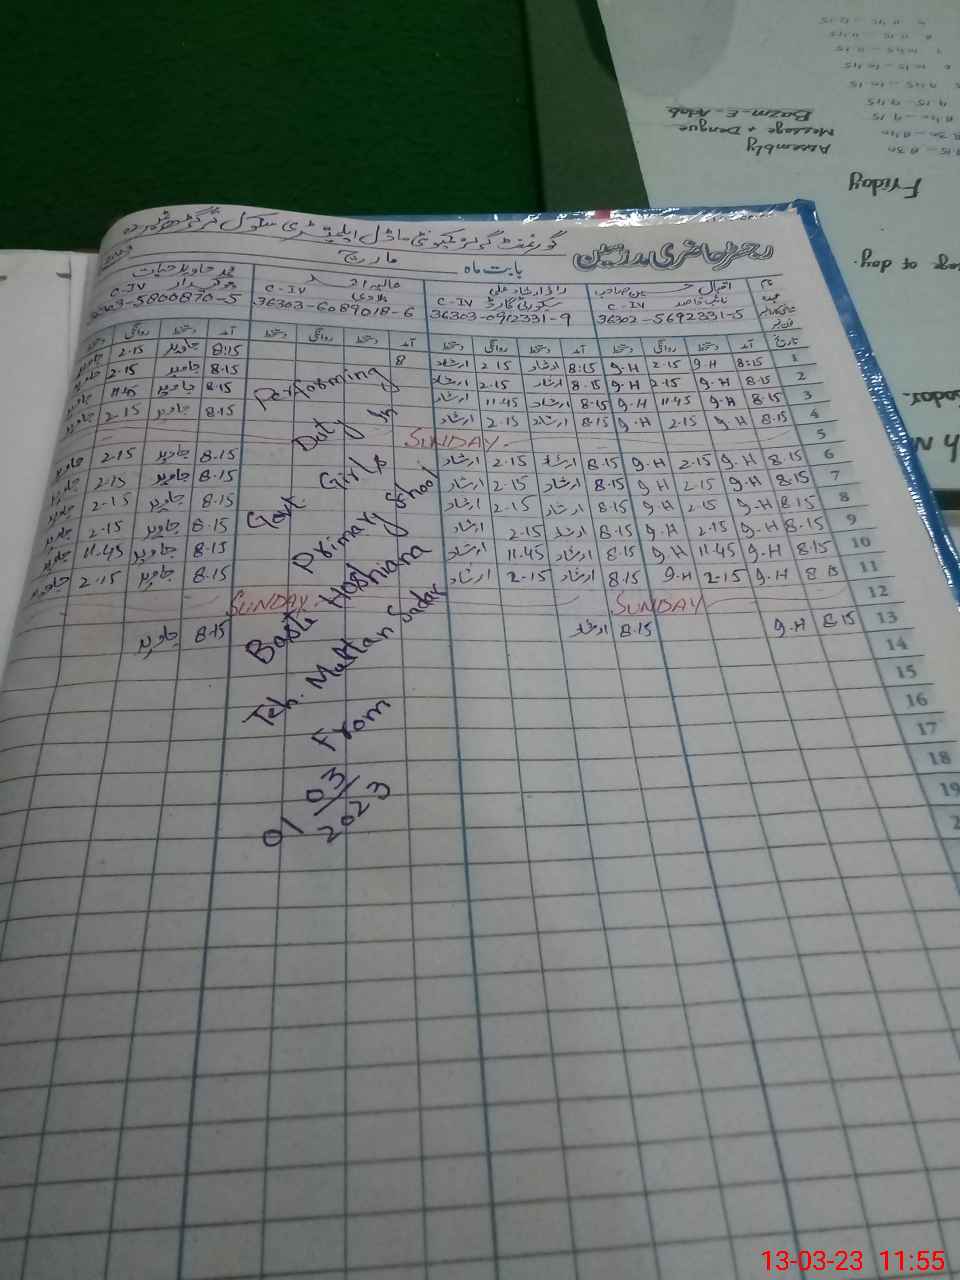 گورنمنٹ گرلز کمیونٹی ماڈل ایلیمنٹری سکول
رجسٹر حاضری مدرسین
بابت ماہ
مارچ
2023
اقبال
نائب قاصد
C-IV
36302-5692331-5
راؤ ارشاد علی
سکیورٹی گارڈ
C-IV
36303-0912331-9
C-IV
36303-6089018-6
محمد جاوید حیات
چوکیدار
C-IV
36303-5800870-5
تاریخ
آمد دستخط روانگی دستخط آمد دستخط روانگی دستخط آمد دستخط روانگی دستخط آمد دستخط روانگی دستخط
1 8:15 G.H 2.15 G.H 8:15 ارشاد 2.15 ارشاد 8 8:15 جاوید 2.15 جاوید
2 8.15 G.H 2.15 G.H 8.15 ارشاد 2.15 ارشاد 8.15 جاوید 2.15 جاوید
3 8.15 G.H 11.45 G.H 8.15 ارشاد 11.45 ارشاد 8.15 جاوید 11.45 جاوید
4 8.15 G.H 2.15 G.H 8.15 ارشاد 2.15 ارشاد 8.15 جاوید 2.15 جاوید
5 SUNDAY.
6 8.15 G.H 2.15 G.H 8.15 ارشاد 2.15 ارشاد 8.15 جاوید 2.15 جاوید
7 8.15 G.H 2.15 G.H 8.15 ارشاد 2.15 ارشاد 8.15 جاوید 2.15 جاوید
8 8.15 G.H 2.15 G.H 8.15 ارشاد 2.15 ارشاد 8.15 جاوید 2.15 جاوید
9 8.15 G.H 2.15 G.H 8.15 ارشاد 2.15 ارشاد 8.15 جاوید 2.15 جاوید
10 8.15 G.H 11.45 G.H 8.15 ارشاد 11.45 ارشاد 8.15 جاوید 11.45 جاوید
11 8.15 G.H 2.15 G.H 8.15 ارشاد 2.15 ارشاد 8.15 جاوید 2.15 جاوید
12 SUNDAY SUNDAY.
13 8.15 G.H 8.15 ارشاد 8.15 جاوید
14
15
16
17
18
19
Performing
Duty in
Govt. Girls
Primary School
Basti Hoshiana
Teh. Multan Sadar
From
01/03/2023
Friday
Assembly
Message + Dengue
Bazm-E-Adab
8.15 - 8.30
9.15 - 9.45
age of day.
Sadar.
13-03-23 11:55